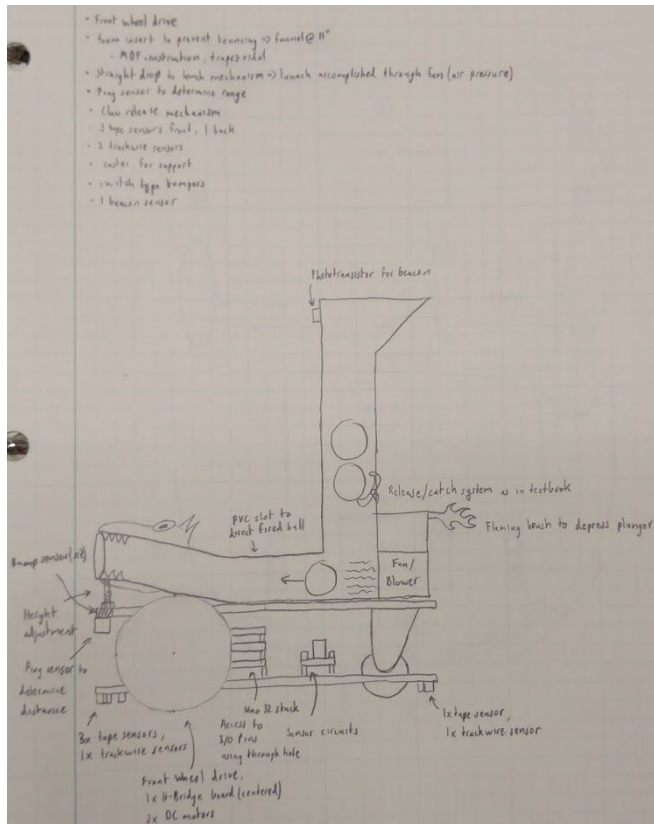 • Front wheel drive
• foam insert to prevent bouncing => funnel @ 11"
• MDF construction, trapezoidal
• Straight drop to launch mechanism => launch accomplished through fan (air pressure)
• Ping sensor to determine range
• Claw release mechanism
• 3 tape sensors front, 1 back
• 2 trackwire sensors
• caster for support
• switch type bumpers
• 1 beacon sensor
Phototransistor for beacon
Release/catch system as in textbook
Flaming brush to depress plunger
PVC slot to
direct fired ball
Fan/
Blower
Bump sensor (x2)
Height
adjustment
Ping sensor to
determine
distance
3x tape sensors,
1x trackwire sensors
Front wheel drive,
1x H-Bridge board (centered)
2x DC motors
Uno 32 stack
Access to
I/O Pins
using through hole
Sensor circuits
1x tape sensor,
1x trackwire sensor